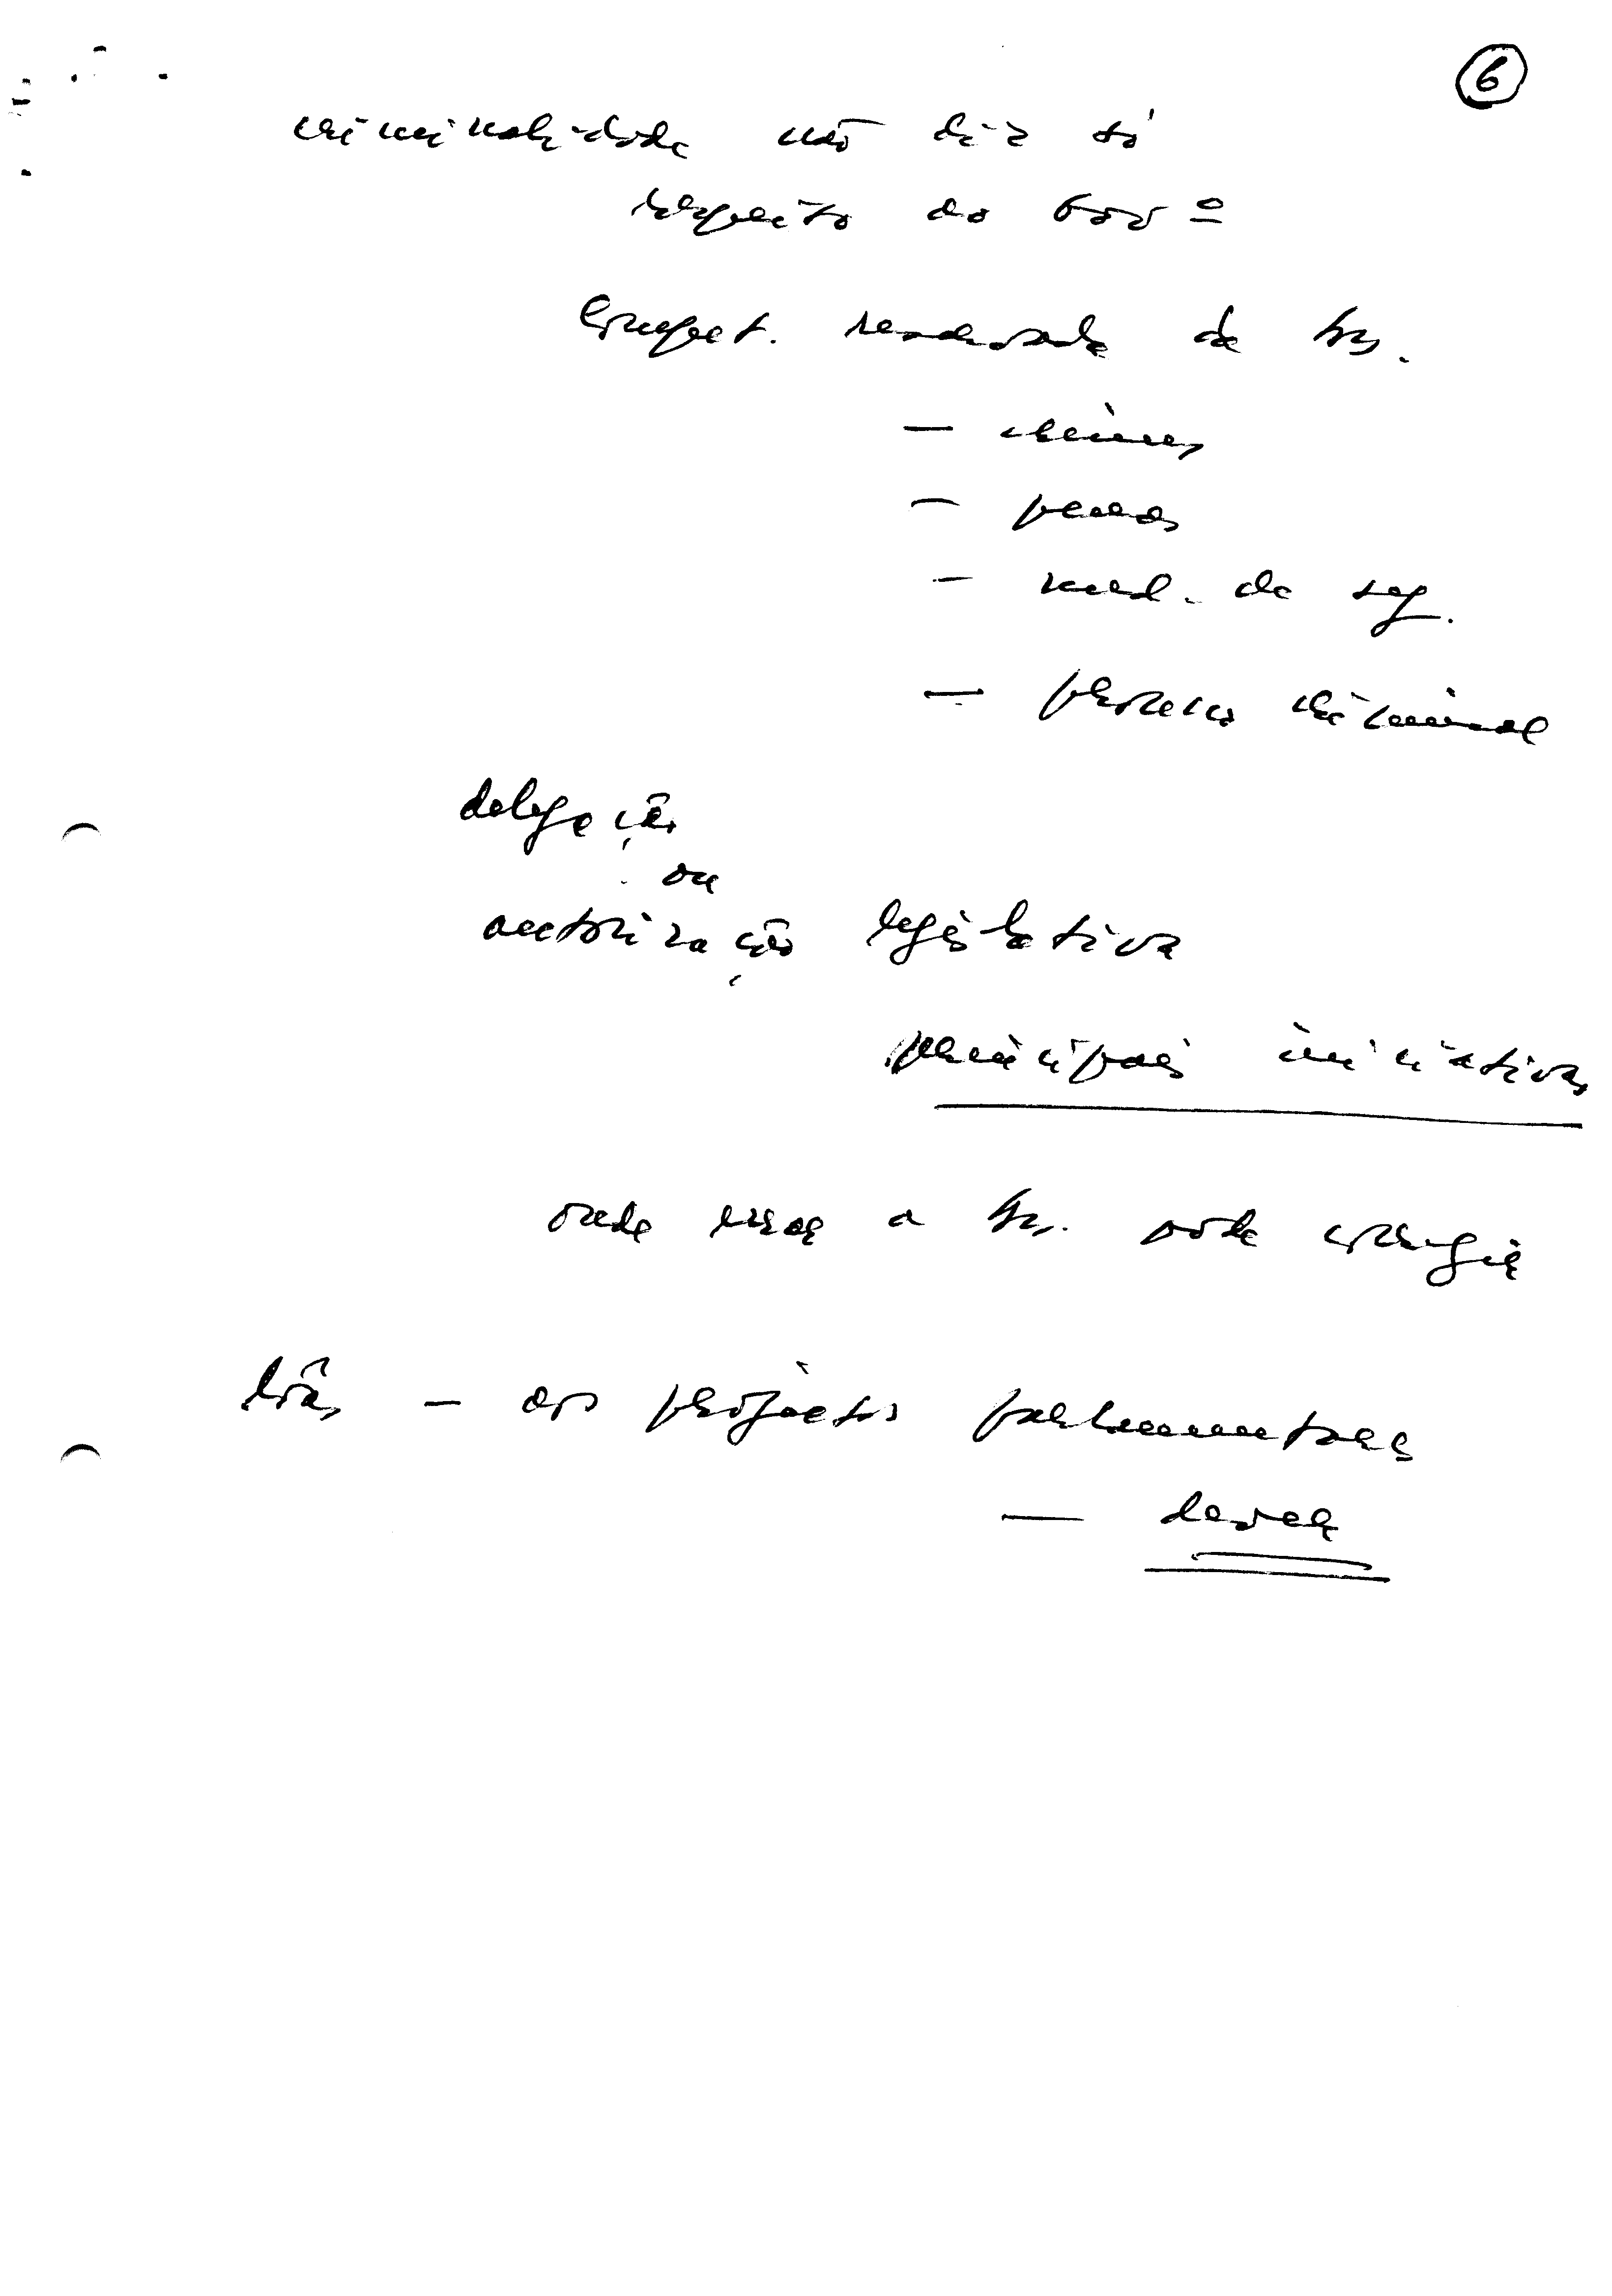 6
criminalidade não diz só
respeito ao Govº
Compet. reservada da
- crimes
- penas
- med. de seg.
- processo criminal
delegação
ou
autorização legislativa
principais iniciativas
onde a pode corrigir
- aos projectos parlamentares
- dever